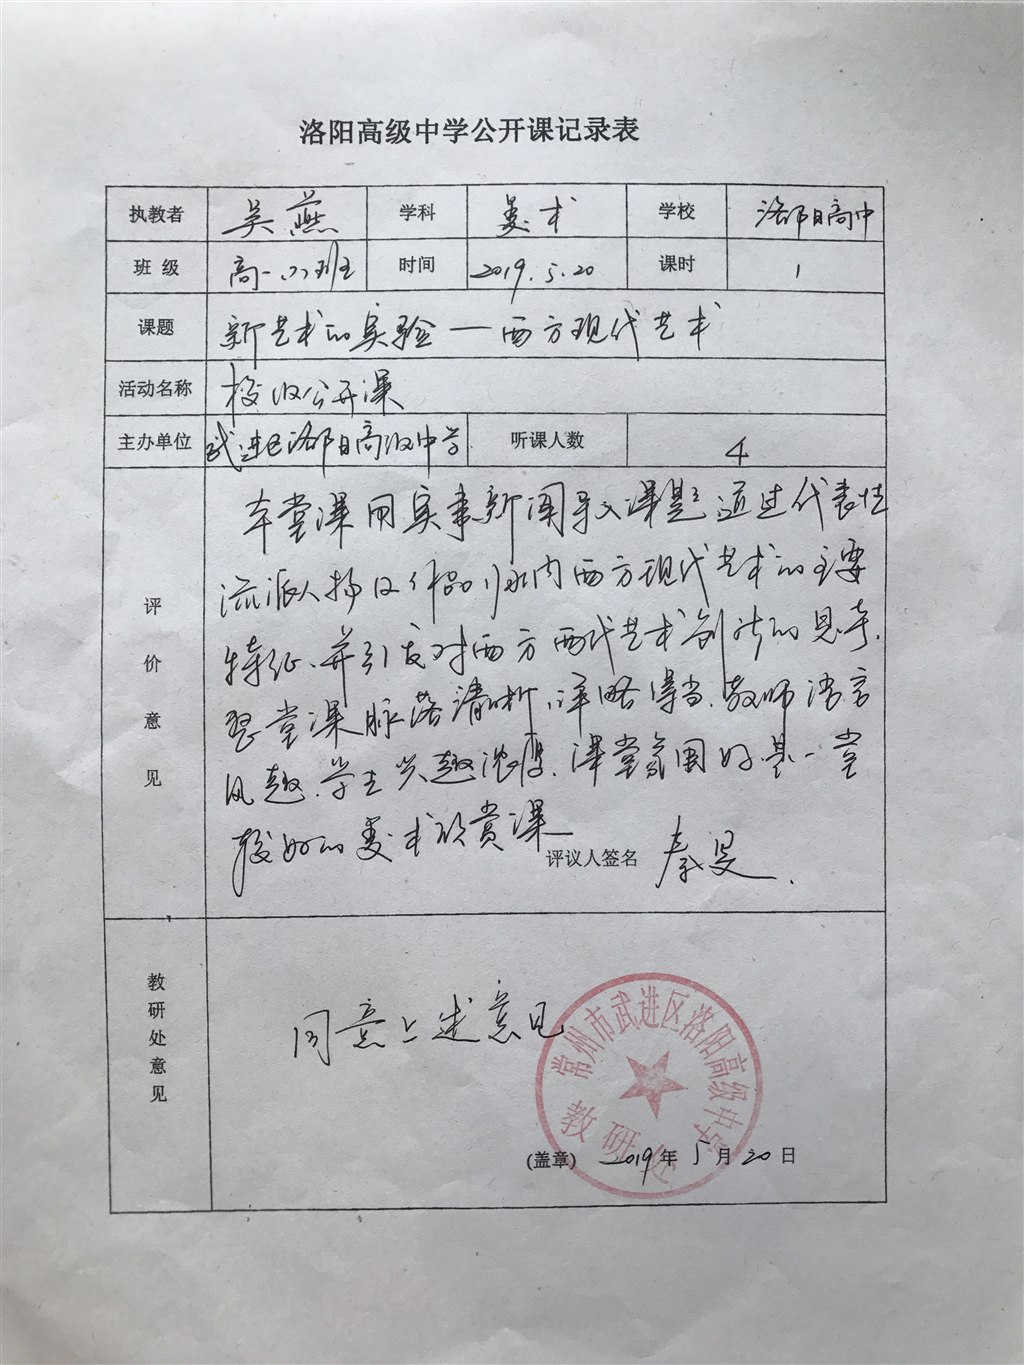 洛阳高级中学公开课记录表
执教者 吴燕 学科 美术 学校 洛阳高中
班级 高一 班 时间 2019.5.20 课时 1
课题 新艺术的实验—西方现代艺术
活动名称 校级公开课
主办单位 武进区洛阳高级中学 听课人数 4
评价意见
本堂课用实事新闻导入课题通过代表性
流派人物及作品归纳西方现代艺术的主要
特征、并引发对西方现代艺术创新的思考.
整堂课脉络清晰、详略得当、教师语言
风趣、学生兴趣浓厚、课堂氛围好是一堂
较好的美术欣赏课
评议人签名 秦旻.
教研处意见
同意上述意见
常州市武进区洛阳高级中学
教研处
(盖章) 2019年5月20日